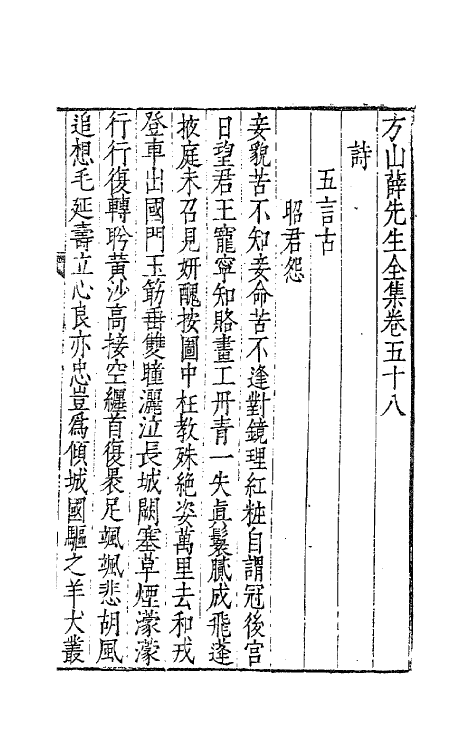 方山薛先生全集卷五十八
詩
五言古
昭君怨
妾貌苦不知妾命苦不逢對鏡理紅粧自謂冠後宮
日望君王寵寧知賂畫工丹青一失眞鬟膩成飛蓬
掖庭未召見妍醜按圖中枉教殊絶姿萬里去和戎
登車出國門玉筯垂雙瞳灑泣長城闕塞草煙濛濛
行行復轉盻黃沙高接空纒首復褁足颯颯悲胡風
追想毛延壽立心良亦忠豈爲傾城國驅之羊犬叢